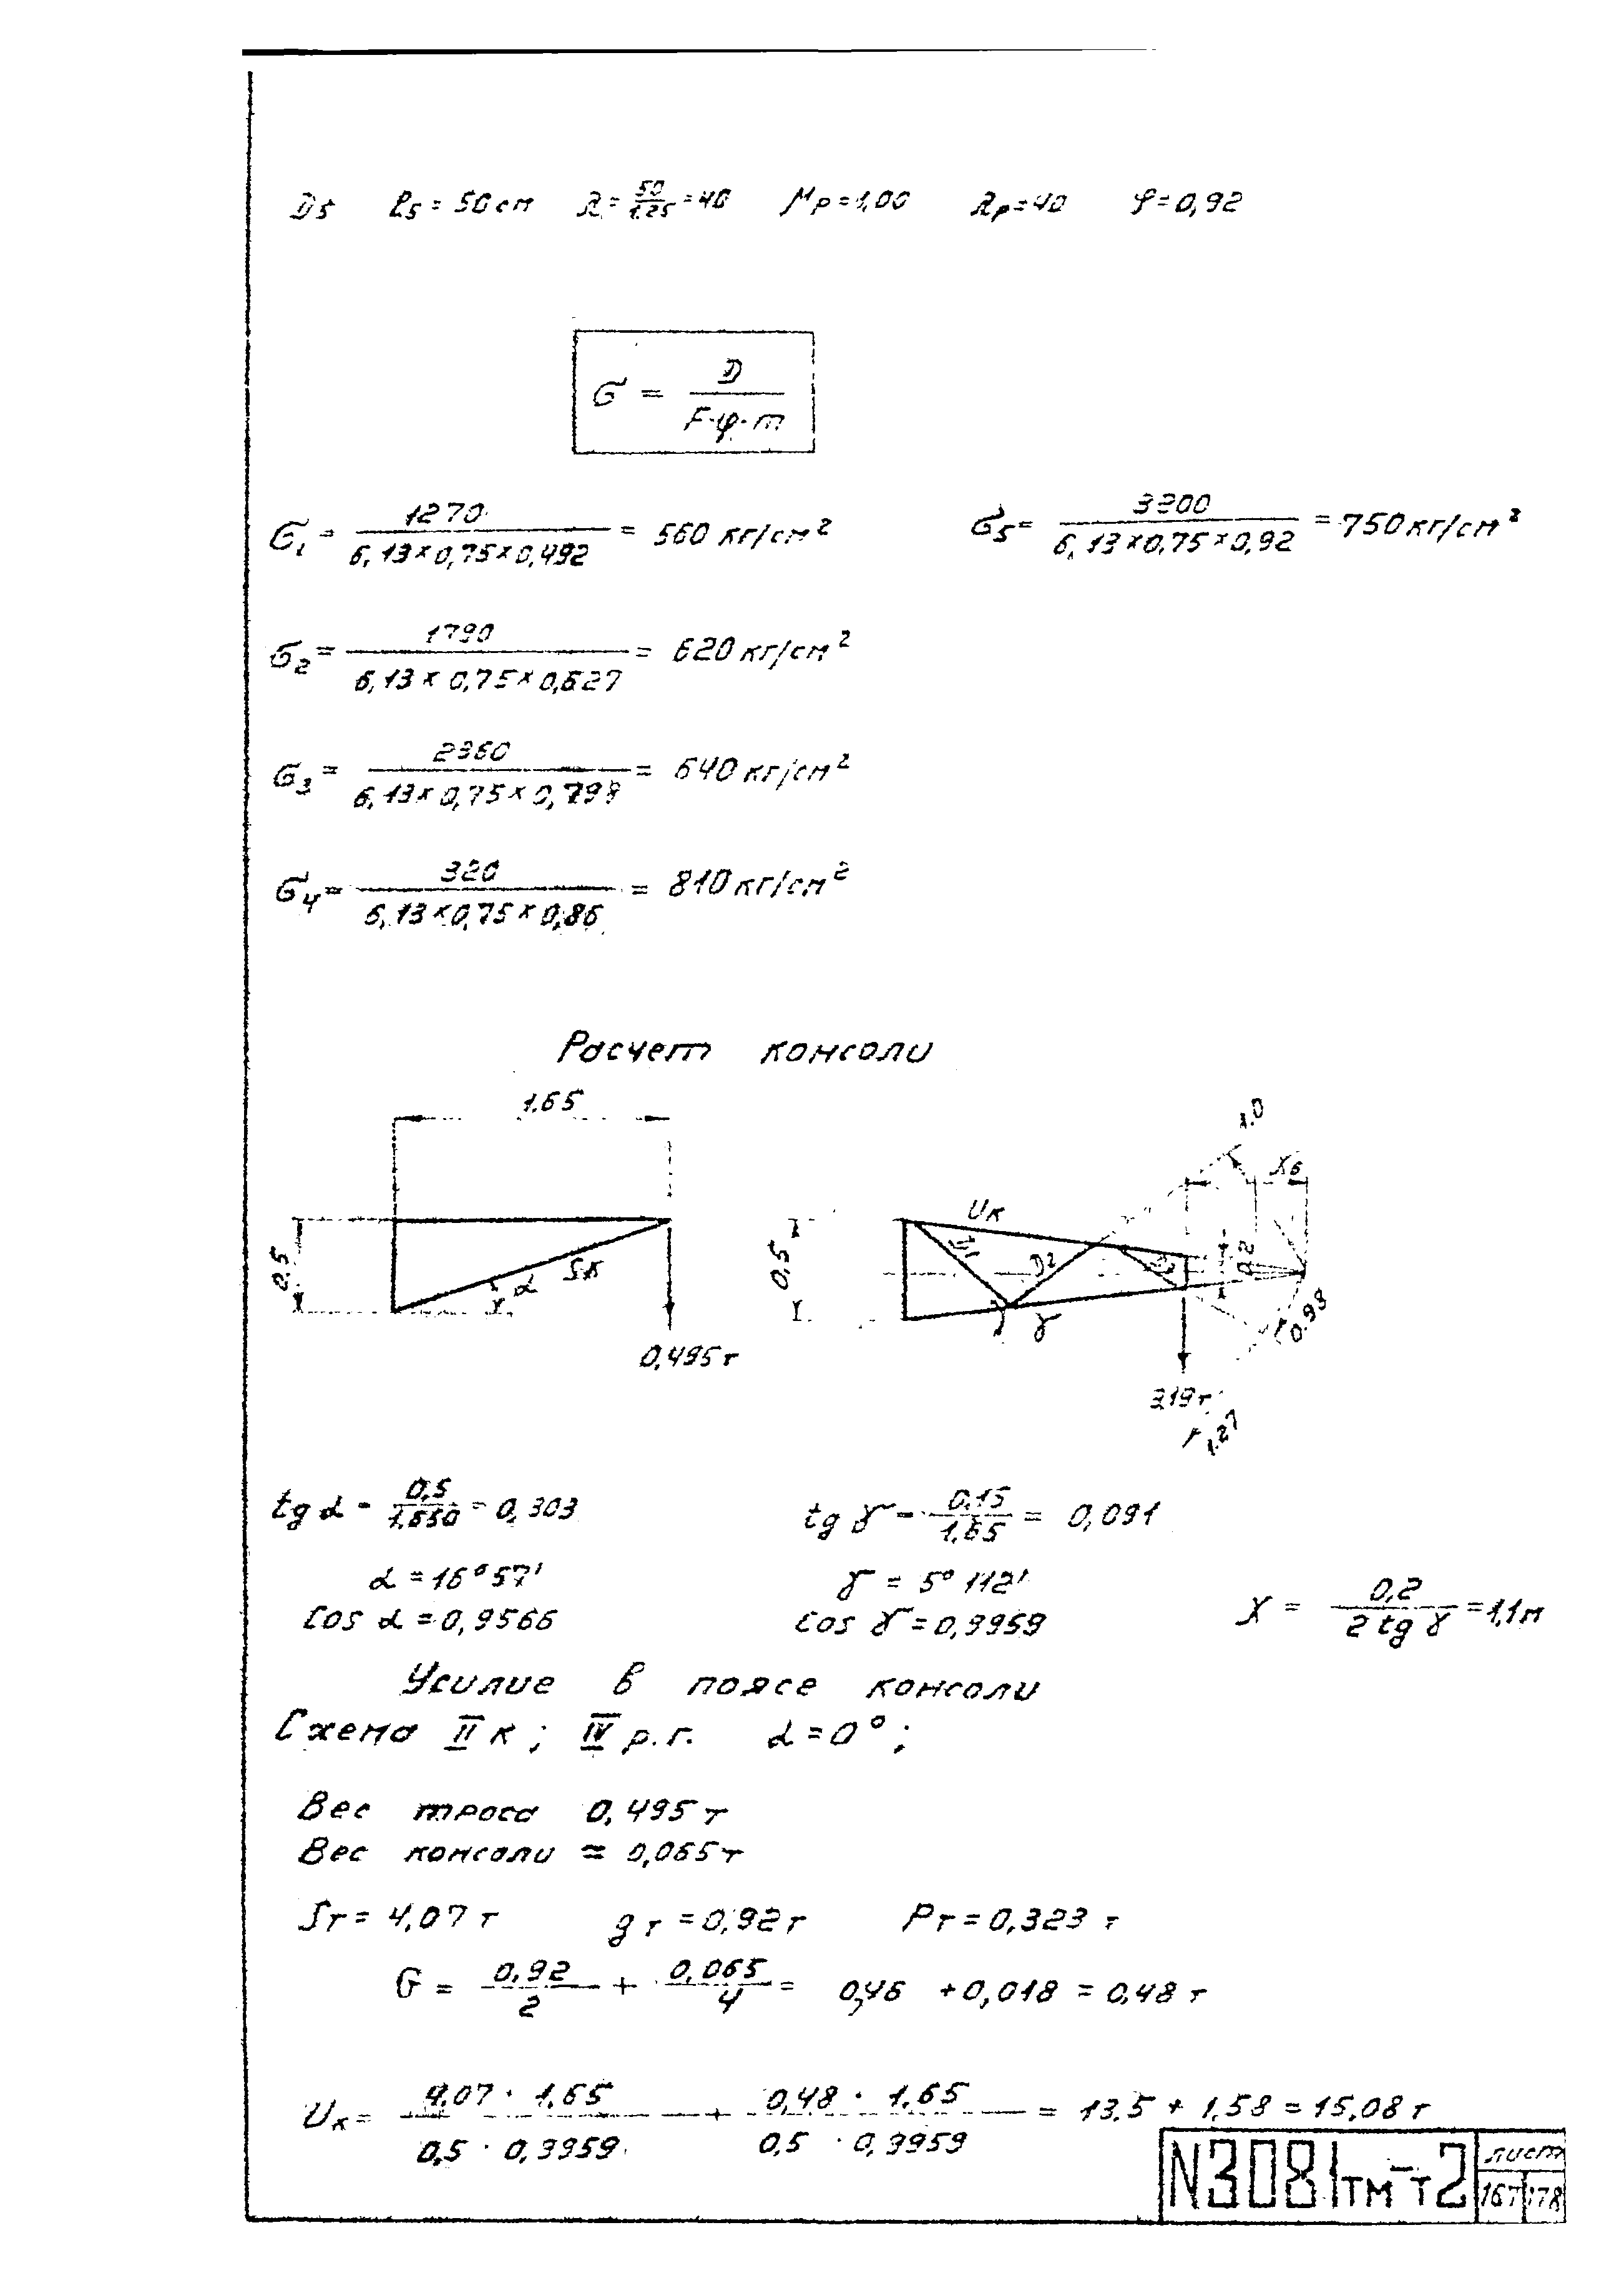 D5 ℓ5 = 50 см λ = 50/1.25 = 40 μр = 1,00 λр = 40 φ = 0,92
σ = D / F·φ·m
σ1 = 1270 / 6,13 × 0,75 × 0,492 = 560 кг/см² σ5 = 3200 / 6,13 × 0,75 × 0,92 = 750 кг/см²
σ2 = 1790 / 6,13 × 0,75 × 0,627 = 620 кг/см²
σ3 = 2360 / 6,13 × 0,75 × 0,798 = 640 кг/см²
σ4 = 320 / 6,13 × 0,75 × 0,86 = 810 кг/см²
Расчет консоли
1.65
1.0
X6
Uк
0,5 α Sк 0,5 D1 D2 0.2
γ r 0.98
0,495 т
3,19 т
r 1.27
tg α = 0,5/1,650 = 0,303 tg γ = 0,15/1,65 = 0,091
α = 16°57' γ = 5°112' X = 0,2 / 2 tg γ = 1,1 м
cos α = 0,9566 cos γ = 0,9959
Усилие в поясе консоли
Схема II к; IV р.г. α = 0°;
Вес троса 0,495 т
Вес консоли ≈ 0,065 т
Sт = 4,07 т gт = 0,92 т Pт = 0,323 т
G = 0,92/2 + 0,065/4 = 0,46 + 0,018 = 0,48 т
Uк = 4,07 · 1,65 / 0,5 · 0,9959 + 0,48 · 1,65 / 0,5 · 0,9959 = 13,5 + 1,58 = 15,08 т
N3081тм-т2 лист
167 178